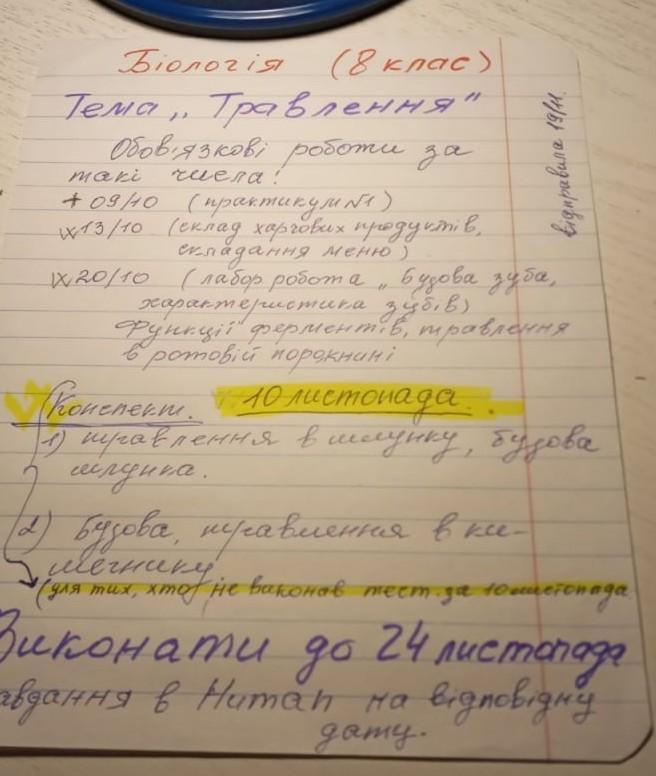 Біологія (8 клас)
Тема „Травлення"
Обов'язкові роботи за
такі числа:
+ 09/10 (практикум №1)
13/10 (склад харчових продуктів,
складання меню)
20/10 (лабор. робота „Будова зуба,
характеристика зубів)
Функції ферментів, травлення
в ротовій порожнині
10 листопада.
Конспект.
1) травлення в шлунку, будова
шлунка.
2) Будова, травлення в ки-
шечнику
(для тих, хто не виконав тест. за 10 листопада
Виконати до 24 листопада
авдання в Human на відповідну
дату.
відправила 19/11.